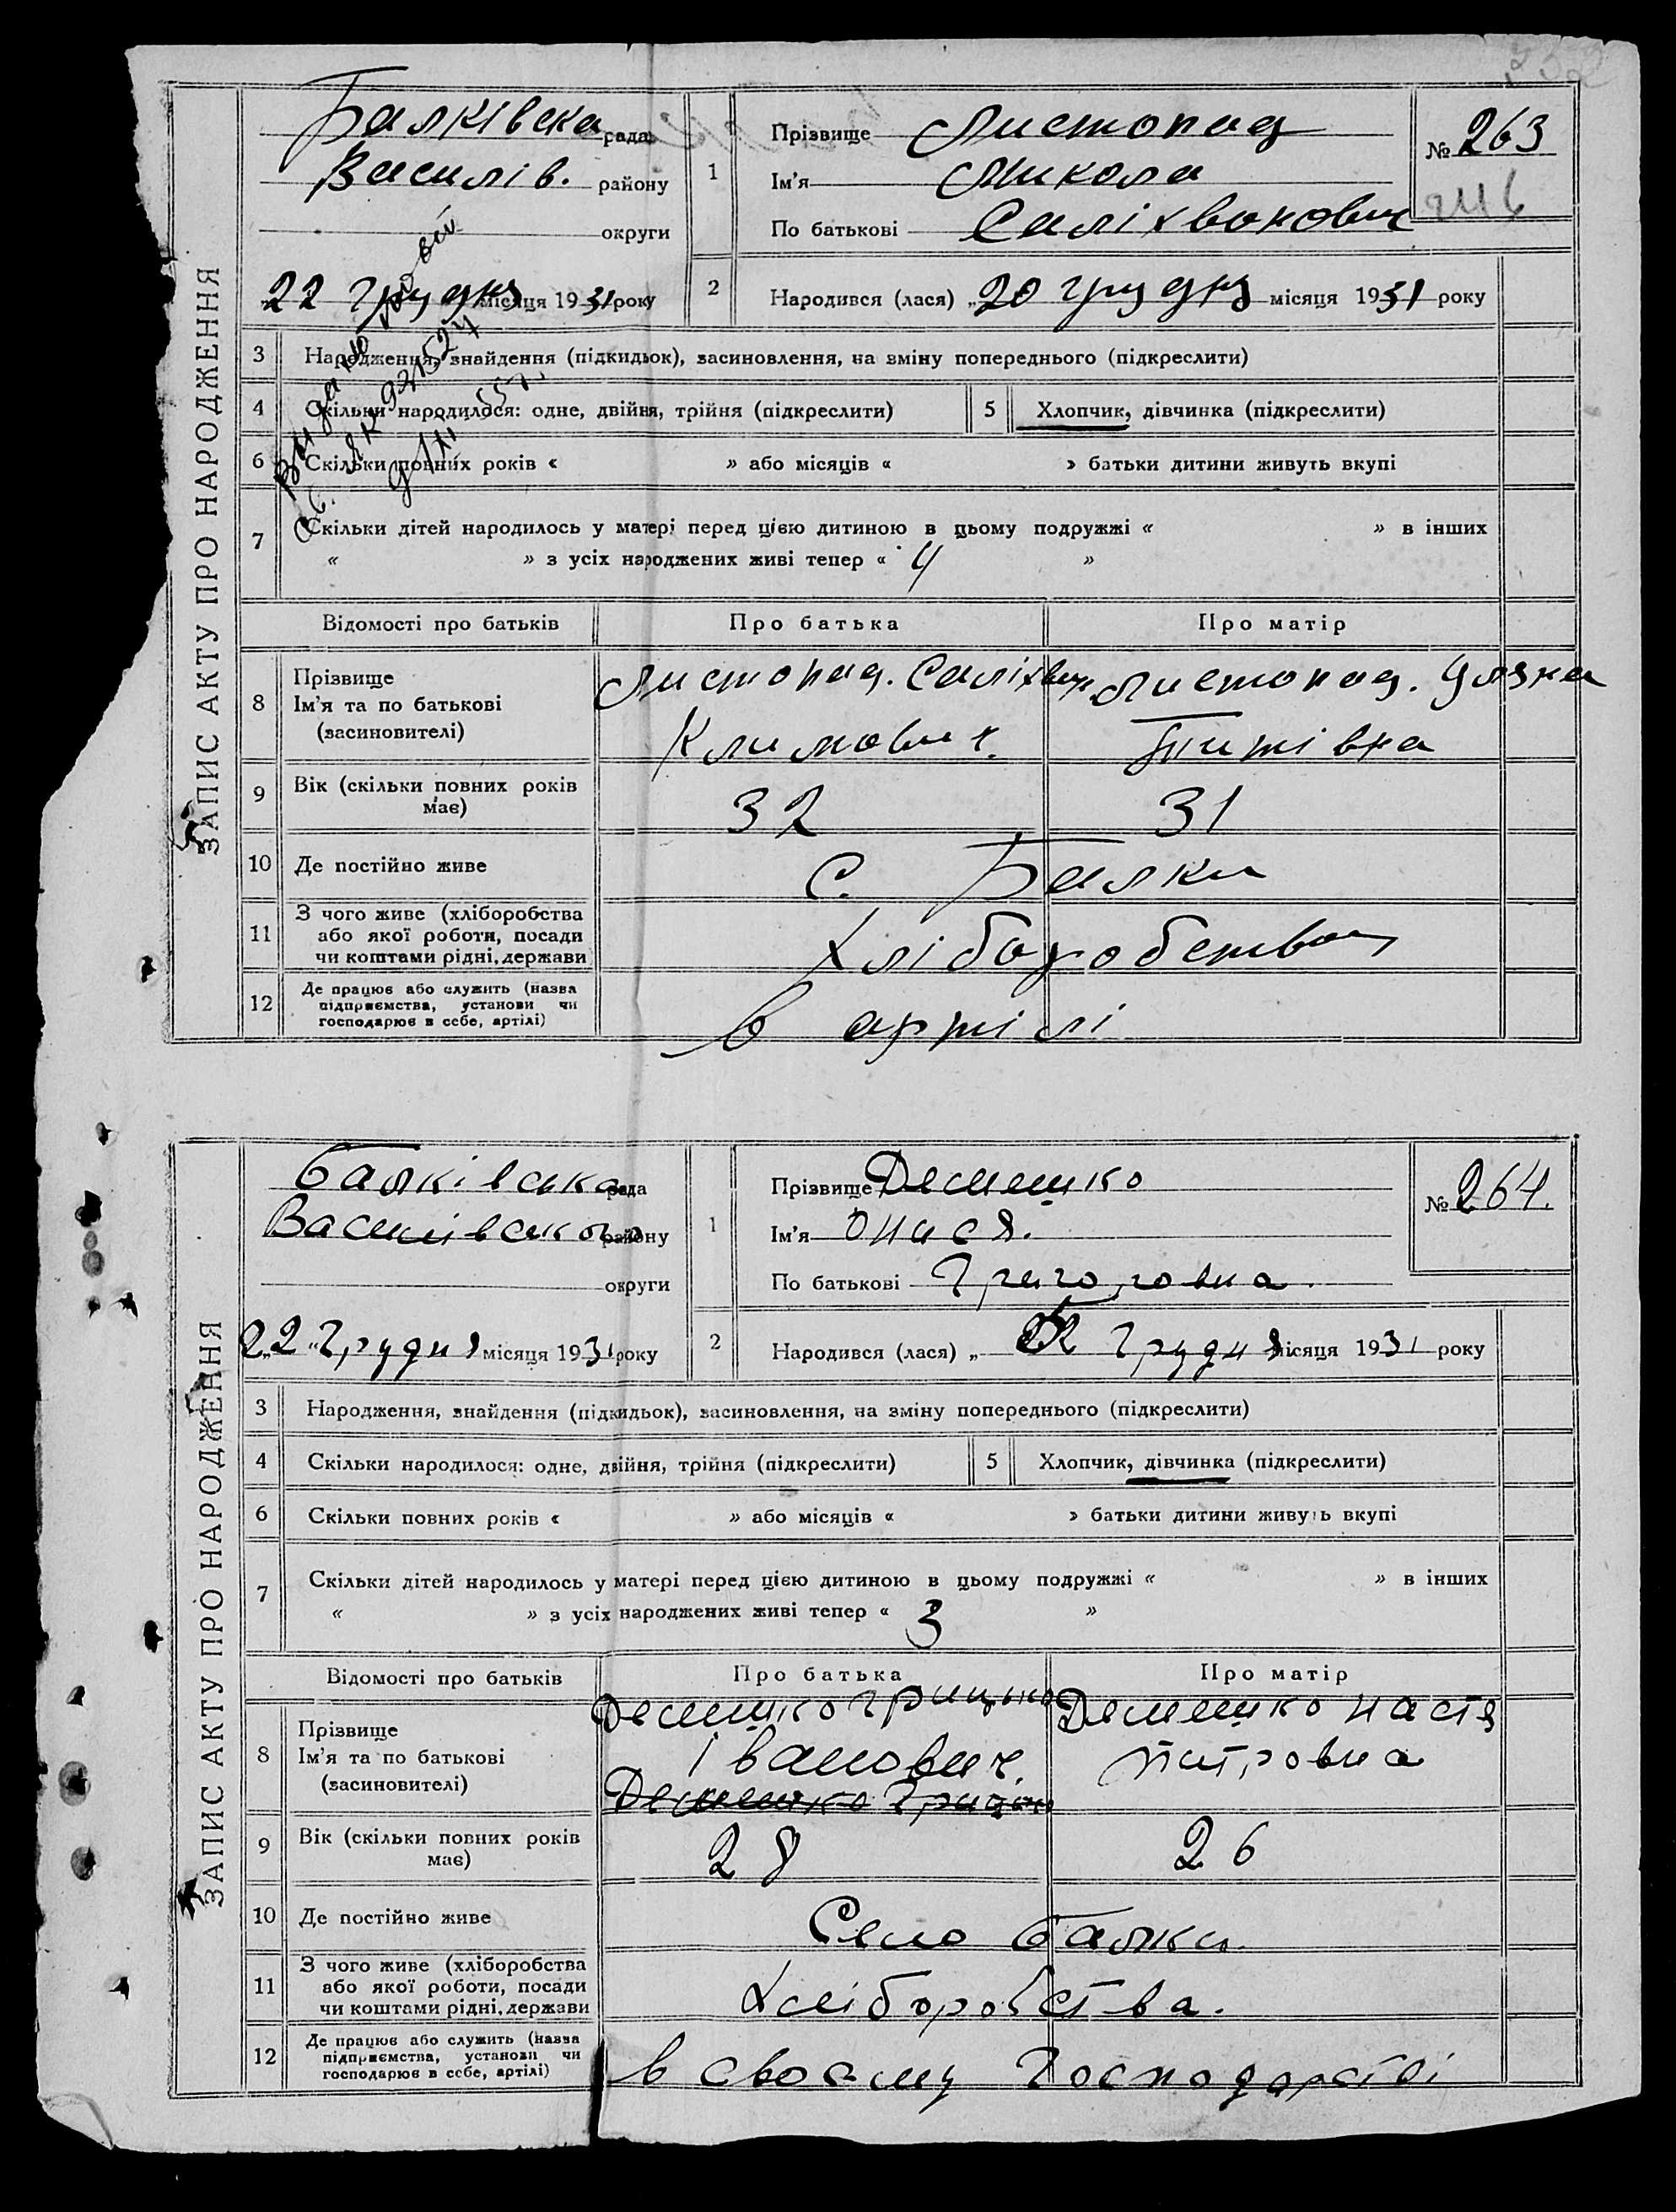 ЗАПИС АКТУ ПРО НАРОДЖЕННЯ
Балківска рада
Василів. району
округи
22 Грудня місяця 1931 року
1 Прізвище Листопад
Ім'я Микола
По батькові Саліхвонович
№ 263
2 Народився (лася) „20 грудня місяця 1931 року
3 Народження, знайдення (підкидьок), засиновлення, на зміну попереднього (підкреслити)
4 Скільки народилося: одне, двійня, трійня (підкреслити) 5 Хлопчик, дівчинка (підкреслити)
6 Скільки повних років « » або місяців « » батьки дитини живуть вкупі
7 Скільки дітей народилось у матері перед цією дитиною в цьому подружжі « » в інших
« » з усіх народжених живі тепер « 4 »
Відомості про батьків Про батька Про матір
8 Прізвище
Ім'я та по батькові
(засиновителі)
Листопад. Саліхвон
Климович.
Листопад. Уляна
Титівна
9 Вік (скільки повних років має) 32 31
10 Де постійно живе С. Балки
11 З чого живе (хліборобства
або якої роботи, посади
чи коштами рідні, держави
Хліборобства
12 Де працює або служить (назва
підприємства, установи чи
господарює в себе, артілі)
в артілі
ЗАПИС АКТУ ПРО НАРОДЖЕННЯ
Балківська рада
Василівського району
округи
22 "Грудня місяця 1931 року
1 Прізвище Демешко
Ім'я Онися.
По батькові Григоровна.
№ 264.
2 Народився (лася) „ Грудня місяця 1931 року
3 Народження, знайдення (підкидьок), засиновлення, на зміну попереднього (підкреслити)
4 Скільки народилося: одне, двійня, трійня (підкреслити) 5 Хлопчик, дівчинка (підкреслити)
6 Скільки повних років « » або місяців « » батьки дитини живуть вкупі
7 Скільки дітей народилось у матері перед цією дитиною в цьому подружжі « » в інших
« » з усіх народжених живі тепер « 3 »
Відомості про батьків Про батька Про матір
8 Прізвище
Ім'я та по батькові
(засиновителі)
Демешко Грицько
Іванович.
Демешко Грицько
Демешко Настя
Питровна
9 Вік (скільки повних років має) 28 26
10 Де постійно живе Село Балки.
11 З чого живе (хліборобства
або якої роботи, посади
чи коштами рідні, держави
Хліборобства.
12 Де працює або служить (назва
підприємства, установи чи
господарює в себе, артілі)
в своєму Господарстві